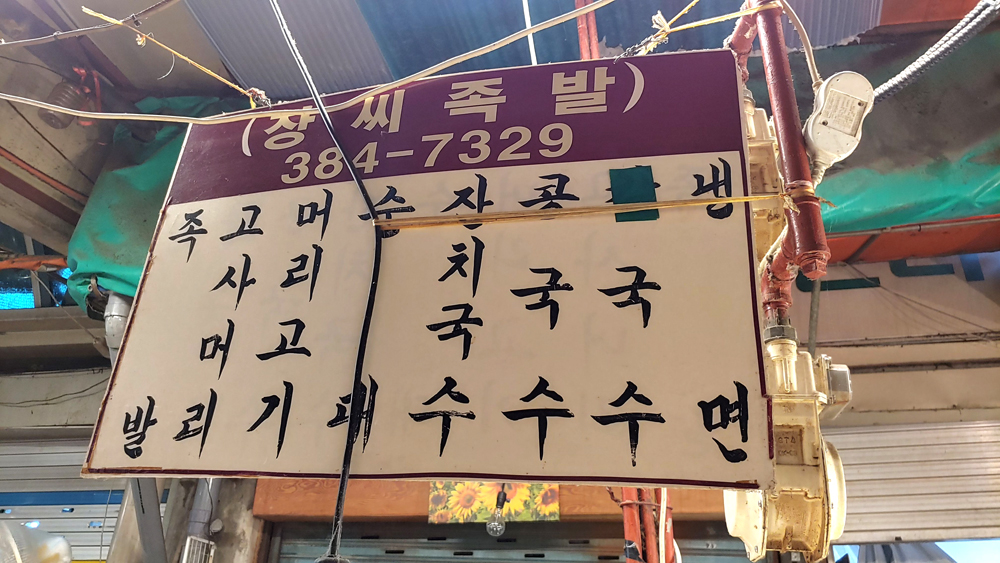 (장 씨 족 발)
384-7329
족발
고사머리
머리고기
순대
잔치국수
콩국수
국수
냉면